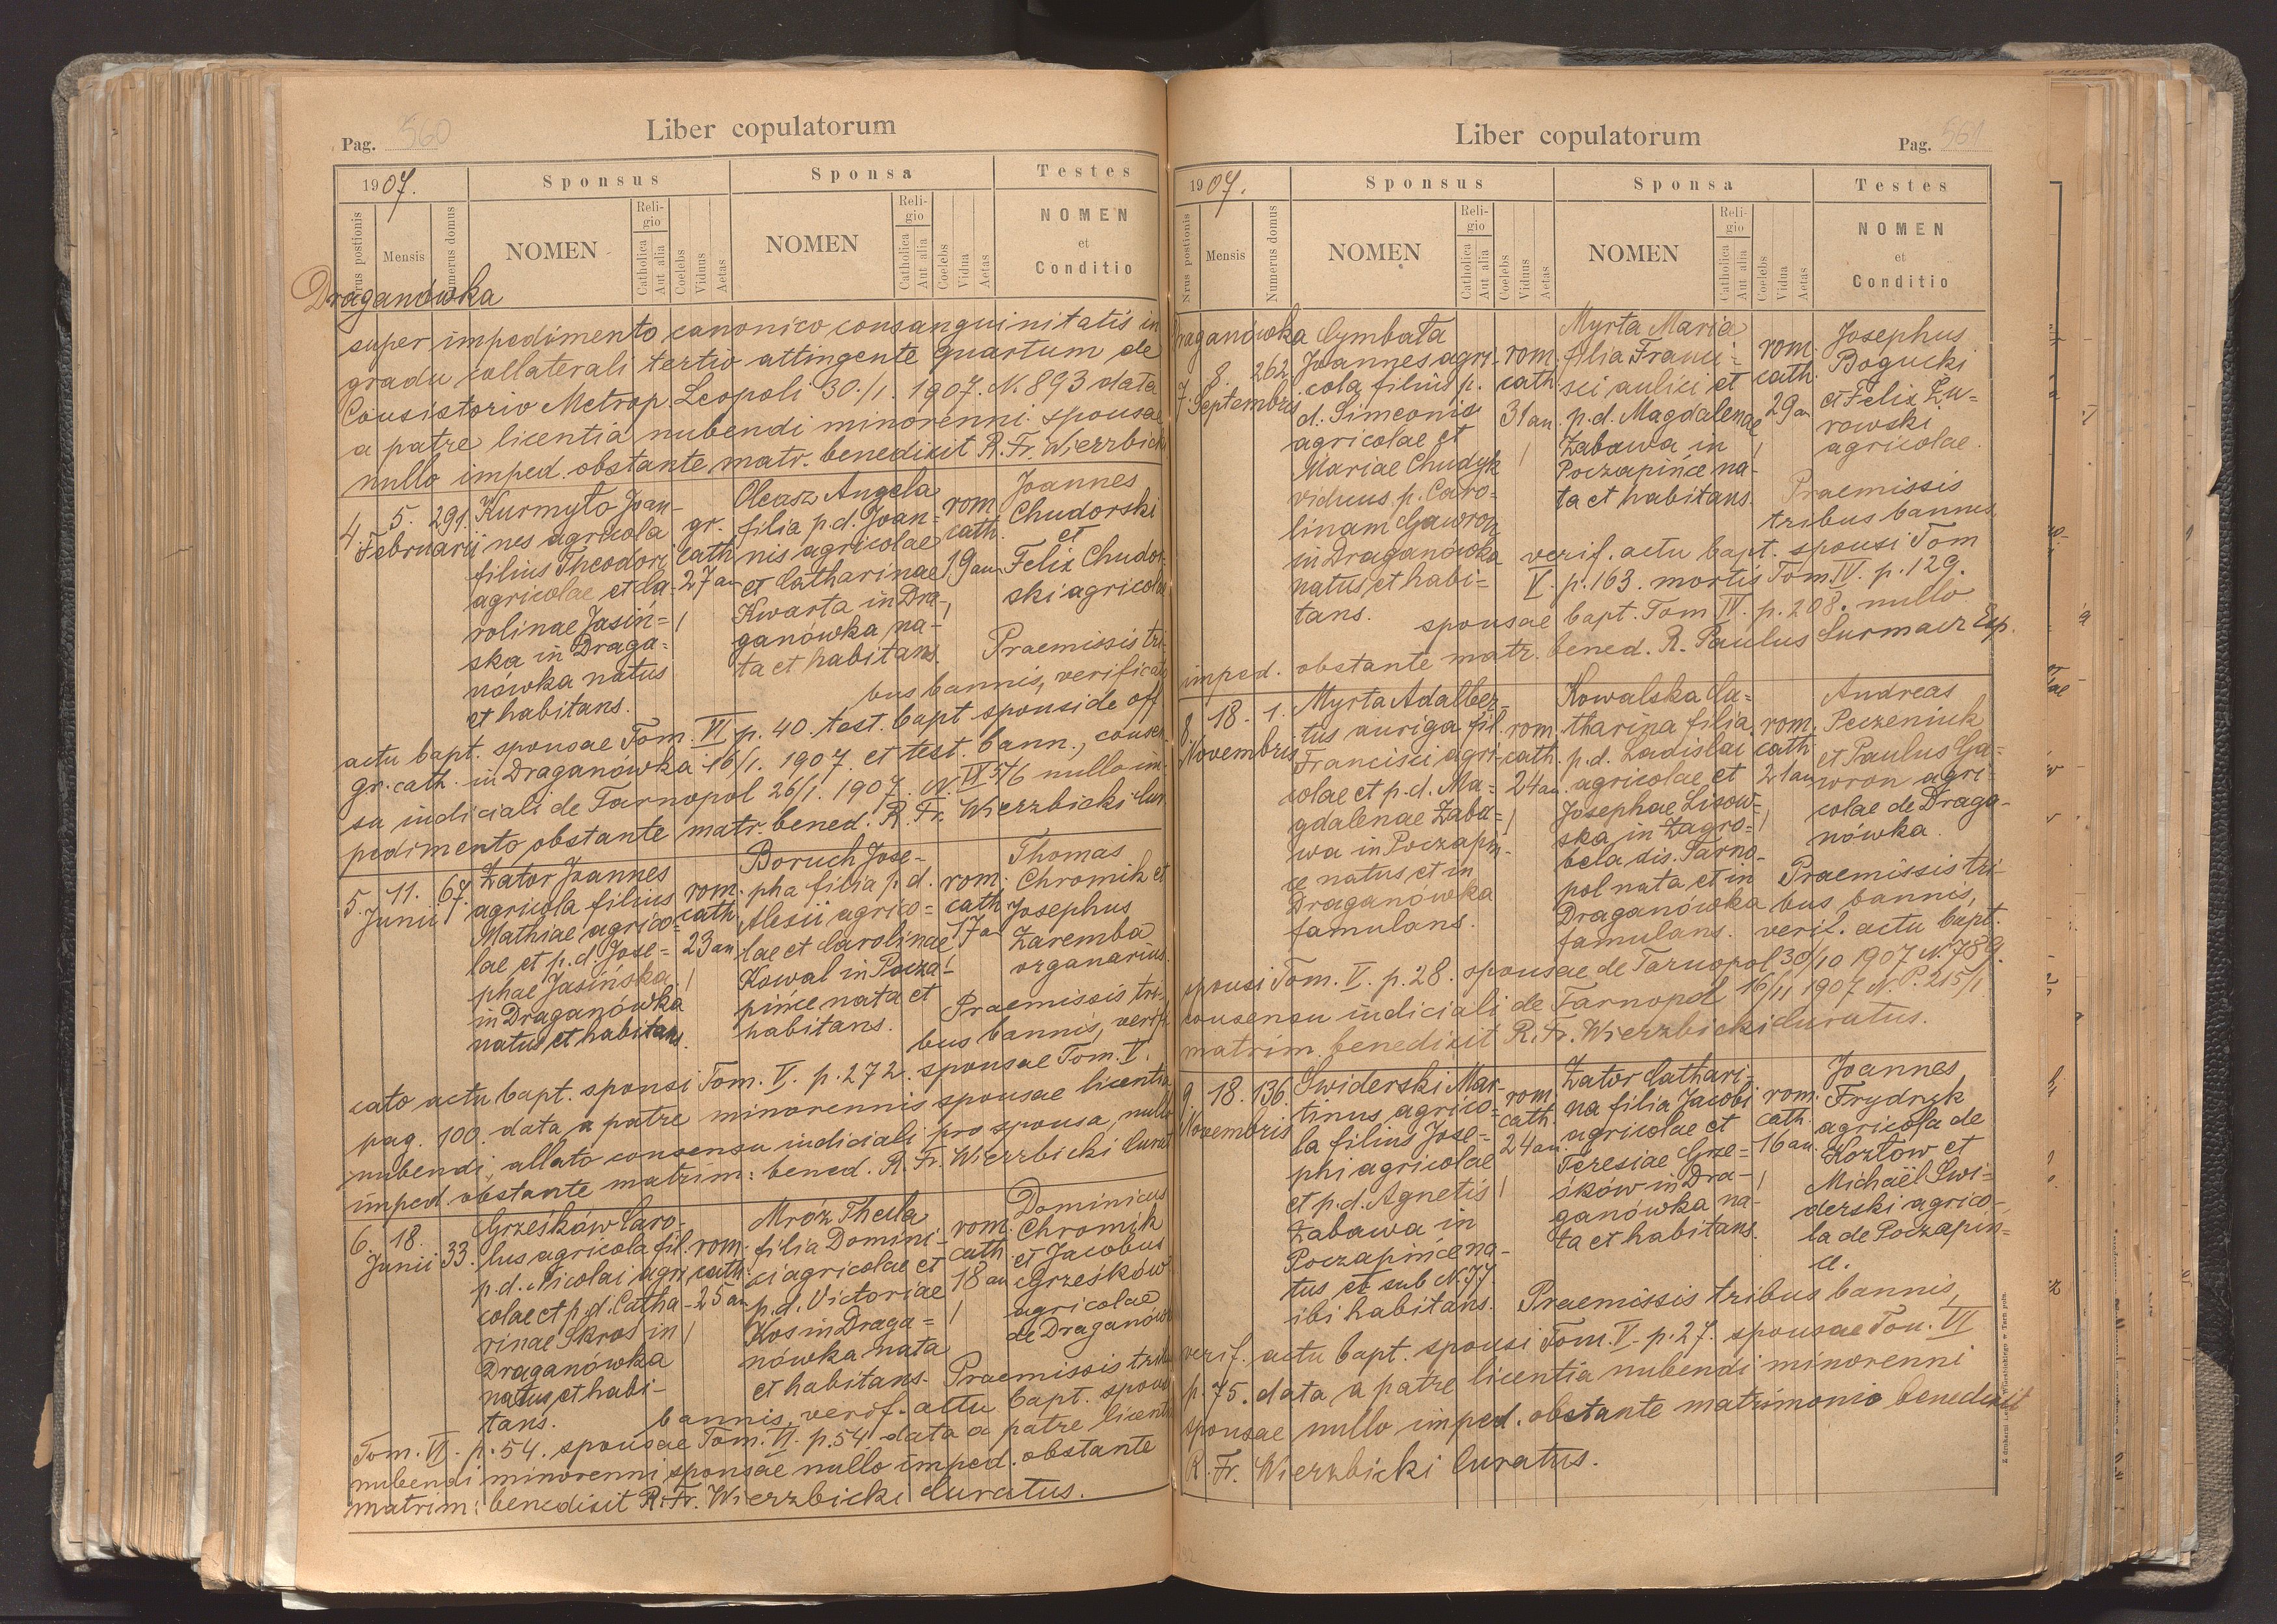 Pag. 560
Liber copulatorum
1907.
Sponsus
Sponsa
Testes
Nrus postionis
Mensis
Numerus domus
NOMEN
Religio
Catholica
Aut alia
Coelebs
Viduus
Aetas
NOMEN
Religio
Catholica
Aut alia
Coelebs
Vidua
Aetas
NOMEN
et
Conditio
Draganówka
super impedimento canonico consanguinitatis in
gradu collaterali tertio attingente quartum de
Consistorio Metrop. Leopoli 30./1. 1907. N. 893 data
a patre licentia nubendi minorenni sponsae
nullo imped. obstante matr. benedixit R. Fr. Wierzbicki
4. 5. Februarii 291.
Kurmyło Joan-
nes agricola
filius Theodori
agricolae et Ca-
rolinae Jasiń=
ska in Draga=
nówka natus
et habitans.
gr.
cath
27 an
/
Olearz Angela
filia p.d. Joan=
nis agricolae
et Catharinae
Kwarta in Dra-
ganówka na-
ta et habitans.
rom
cath.
19 an
/
Joannes
Chudorski
et
Felix Chudor
ski agricolae
Praemissis tri-
bus bannis, verificato
actu bapt. sponsae Tom. VI p. 40. test. bapt sponsi de off
gr. cath. in Draganówka 16/1. 1907. et test. bann., consen
su indiciali de Tarnopol 26/1. 1907. N. IX 5/6 nullo im-
pedimento obstante matr. bened. R. Fr. Wierzbicki Cur.
5. 11. Junii 67.
Zator Joannes
agricola filius
Mathiae agrico=
lae et p.d. Jose=
phae Jasińska
in Draganówka
natus et habitans.
rom.
cath.
23 an.
/
Boruch Jose-
pha filia p.d.
Alexii agrico=
lae et Carolinae
Kowal in Pocza-
pińce nata et
habitans.
rom.
cath
17 an
/
Thomas
Chromik et
Josephus
Zaremba
organarius.
Praemissis tri-
bus bannis, verifi
cato actu bapt. sponsi Tom. V. p. 272. sponsae Tom. V.
pag. 100. data a patre minorennis sponsae licentia
nubendi, allato consensu indiciali pro sponsa, nullo
imped. obstante matrim: bened. R. Fr. Wierzbicki Curat
6. 18. Junii 33.
Grześków Caro-
lus agricola fil.
p.d. Nicolai agri
colae et p.d. Catha-
rinae Skros in
Draganówka
natus et habi-
tans.
rom.
cath.
25 an
/
Mróz Thecla
filia Domini-
ci agricolae et
p.d. Victoriae
Kos in Draga=
nówka nata
et habitans.
rom.
cath.
18 an
/
Dominicus
Chromik
et Jacobus
Grześków
agricolae
de Draganówka
Praemissis tribus
bannis, verif. actu bapt. sponsi
Tom. VI. p. 54. sponsae Tom. VI. p. 54. data a patre licentia
nubendi minorenni sponsae nullo imped. obstante
matrim: benedixit R. Fr. Wierzbicki Curatus.
Liber copulatorum
Pag. 561
1907.
Sponsus
Sponsa
Testes
Nrus postionis
Mensis
Numerus domus
NOMEN
Religio
Catholica
Aut alia
Coelebs
Viduus
Aetas
NOMEN
Religio
Catholica
Aut alia
Coelebs
Vidua
Aetas
NOMEN
et
Conditio
Draganówka
7. 8. Septembris 262.
Cymbała
Joannes agri-
cola, filius p.
d. Simeonis
agricolae et
Mariae Chudyk
viduus p. Caro=
linam Gawron
in Draganówka
natus et habi=
tans.
rom.
cath.
31 an.
/
Myrta Maria
filia Franci=
sci aulici et
p.d. Magdalenae
Zabawa in
Poczapińce na-
ta et habitans.
rom.
cath.
29 an
/
Josephus
Bogucki
et Felix Żu=
rowski
agricolae.
Praemissis
tribus bannis,
verif. actu bapt. sponsi Tom
V. p. 163. mortis Tom. IV. p. 129.
sponsae bapt. Tom IV. p. 208. nullo
imped. obstante matr. bened. R. Paulus Surmacz Exp.
8. 18. Novembris 1.
Myrta Adalber-
tus auriga fil.
Francisci agri-
colae et p.d. Ma=
gdalenae Zaba=
wa in Poczapiń-
ce natus et in
Draganówka
famulans.
rom.
cath.
24 an.
/
Kowalska Ca=
tharina filia
p.d. Ladislai
agricolae et
Josephae Lisow=
ska in Zagro=
bela dis. Tarno-
pol nata et in
Draganówka
famulans.
rom.
cath
21 an
/
Andreas
Peczeniuk
et Paulus Ga=
wron agri-
colae de Draga-
nówka.
Praemissis tri-
bus bannis,
verif. actu bapt.
sponsi Tom. V. p. 28. sponsae de Tarnopol 30/10 1907 N. 789.
consensu indiciali de Tarnopol 16/11 1907 N. P. 215/1
matrim. benedixit R. Fr. Wierzbicki Curatus.
9. 18. Novembris 136.
Swiderski Mar-
tinus, agrico=
la filius Jose=
phi agricolae
et p.d. Agnetis
Zabawa in
Poczapińce na-
tus et sub N. 77
ibi habitans.
rom.
cath.
24 an.
/
Zator Cathari-
na filia Jacobi
agricolae et
Teresiae Grze=
śków in Dra-
ganówka na-
ta et habitans.
rom.
cath.
16 an.
/
Joannes
Frydryk
agricola de
Kozłów et
Michaël Swi-
derski agrico-
la de Poczapiń=
ce.
Praemissis tribus bannis,
verif. actu bapt. sponsi Tom. V. p. 27. sponsae Tom. VI
p. 75. data a patre licentia nubendi minorenni
sponsae nullo imped. obstante matrimonio benedixit
R. Fr. Wierzbicki Curatus.